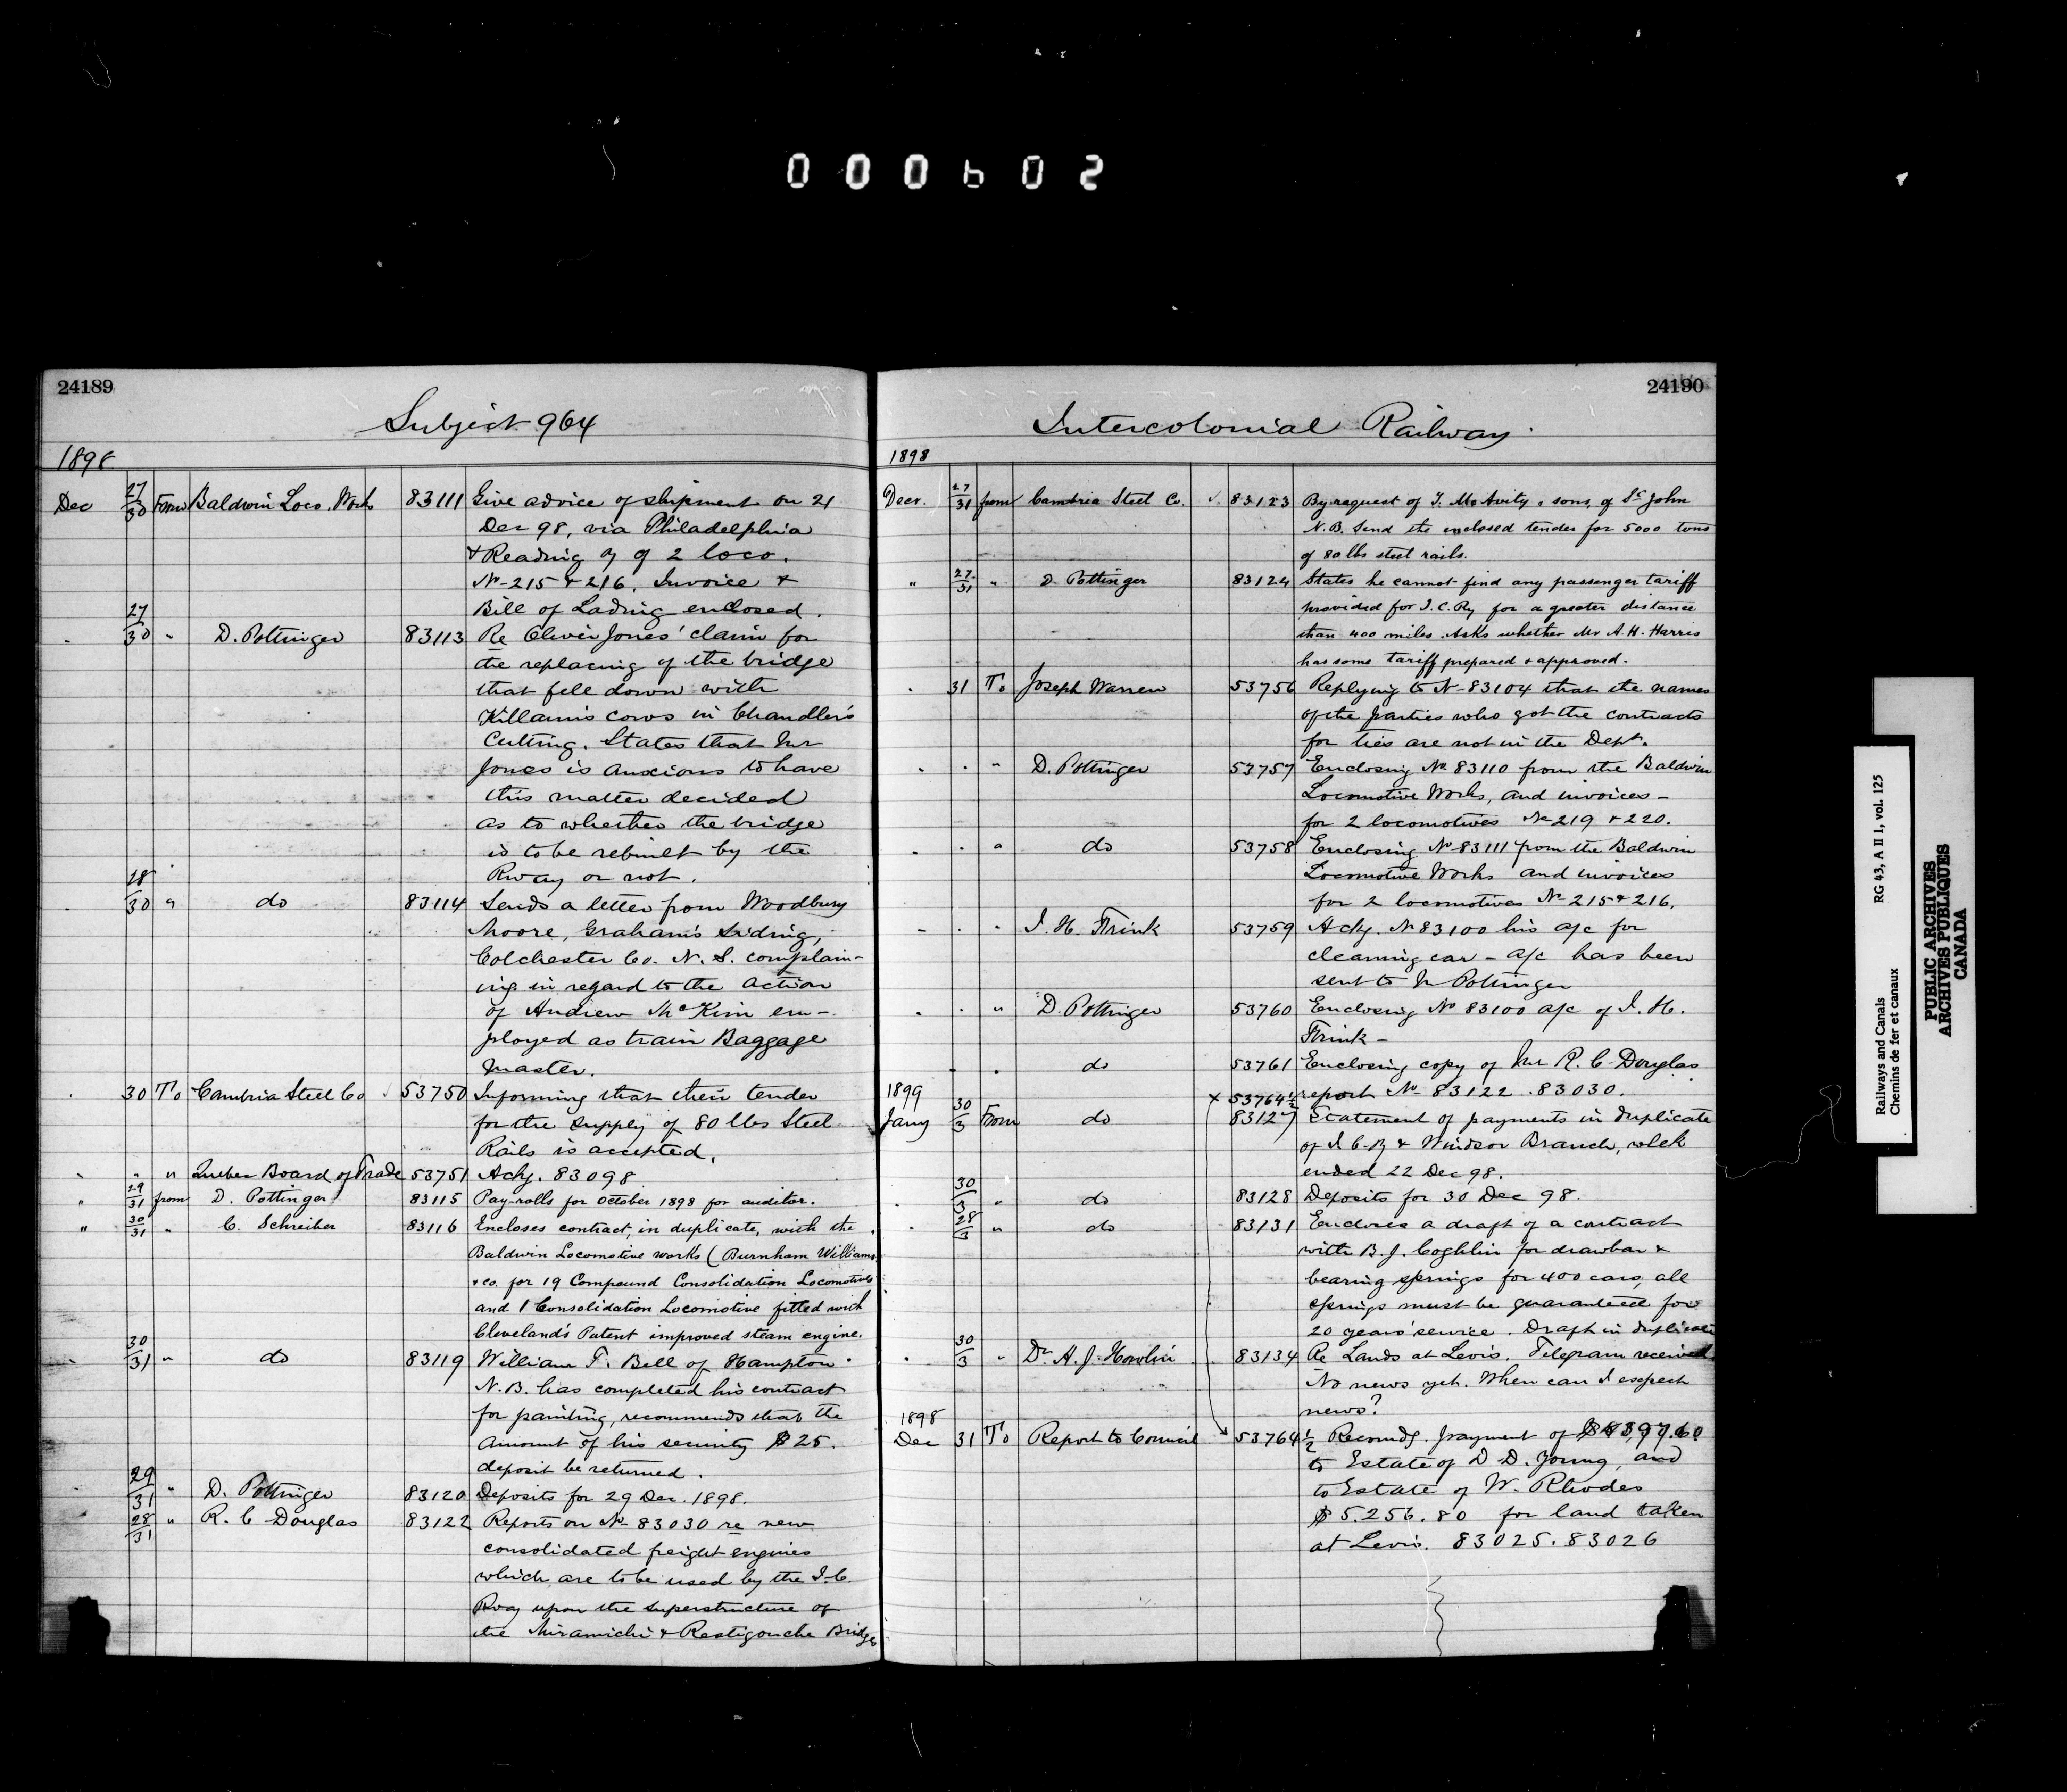 000602
24189
Subject 964
1898
Dec 27/30 From Baldwin Loco. Works 83111 Give advice of shipment on 21
Dec 98, via Philadelphia
& Reading Ry of 2 loco.
No 215 & 216. Invoice &
Bill of Lading enclosed.
" 27/30 " D. Pottinger 83113 Re Oliver Jones' claim for
the replacing of the bridge
that fell down with
Killam's cows in Chandler's
Cutting. States that Mr
Jones is anxious to have
this matter decided
as to whether the bridge
is to be rebuilt by the
Rway or not.
" 28/30 " do 83114 Sends a letter from Woodbury
Moore, Graham's Siding,
Colchester Co. N.S. complain-
ing in regard to the action
of Andrew McKim em-
ployed as train Baggage
Master.
" 30 To Cambria Steel Co 53750 Informing that their tender
for the supply of 80 lbs Steel
Rails is accepted.
" " " Quebec Board of Trade 53751 Ackg. 83098
" 29/31 from D. Pottinger 83115 Pay-rolls for October 1898 for auditor.
" 30/31 " C. Schreiber 83116 Encloses contract, in duplicate, with the
Baldwin Locomotive works (Burnham Williams
& co. for 19 Compound Consolidation Locomotives
and 1 Consolidation Locomotive fitted with
Cleveland's Patent improved steam engine.
" 30/31 " do 83119 William T. Bell of Hampton
N.B. has completed his contract
for painting, recommends that the
amount of his security $25.
deposit be returned.
" 29/31 " D. Pottinger 83120 Deposits for 29 Dec. 1898.
28/31 " R. C Douglas 83122 Reports on No 83030 re new
consolidated freight engines
which are to be used by the I.C.
Rway upon the superstructure of
the Miramichi & Restigouche Bridge
24190
Intercolonial Railway.
1898
Decr. 27/31 from Cambria Steel Co. 83123 By request of T. McAvity & sons, of St John
N.B. Send the enclosed tender for 5000 tons
of 80 lbs steel rails.
" 27/31 " D. Pottinger 83124 States he cannot find any passenger tariff
provided for I.C.Ry for a greater distance
than 400 miles. Asks whether Mr A.H. Harris
has some tariff prepared & approved.
" 31 To Joseph Warren 53756 Replying to No 83104 that the names
of the parties who got the contracts
for ties are not in the Dept.
" " " D. Pottinger 53757 Enclosing No 83110 from the Baldwin
Locomotive Works, and invoices -
for 2 locomotives No 219 & 220.
" " " do 53758 Enclosing No 83111 from the Baldwin
Locomotive Works and invoices
for 2 locomotives No 215 & 216.
" " " I. H. Trink 53759 Ackg. No 83100 his a/c for
cleaning car - a/c has been
sent to Mr Pottinger
" " " D. Pottinger 53760 Enclosing No 83100 a/c of I. H.
Trink -
" " do 53761 Enclosing copy of Mr R. C. Douglas
x 53764½ report No 83122. 83030.
1899
Jany 30/3 From do 83127 Statement of payments in duplicate
of I.C.Ry & Windsor Branch, week
ended 22 Dec 98.
" 30/3 " do 83128 Deposits for 30 Dec 98.
" 28/3 " do 83131 Encloses a draft of a contract
with B. J. Coghlin for drawbar &
bearing springs for 400 cars, all
springs must be guaranteed for
20 years' service. Draft in duplicate
" 30/3 " Dr A. J. Howlin 83134 Re Lands at Levis. Telegram received.
No news yet. When can I expect
news?
1898
Dec 31 To Report to Council 53764½ Recomdg. payment of
to Estate of D. D. Young, and
to Estate of W. Rhodes
$5.256.80 for land taken
at Levis. 83025. 83026
Railways and Canals RG 43, A II 1, vol. 125
Chemins de fer et canaux
PUBLIC ARCHIVES
ARCHIVES PUBLIQUES
CANADA